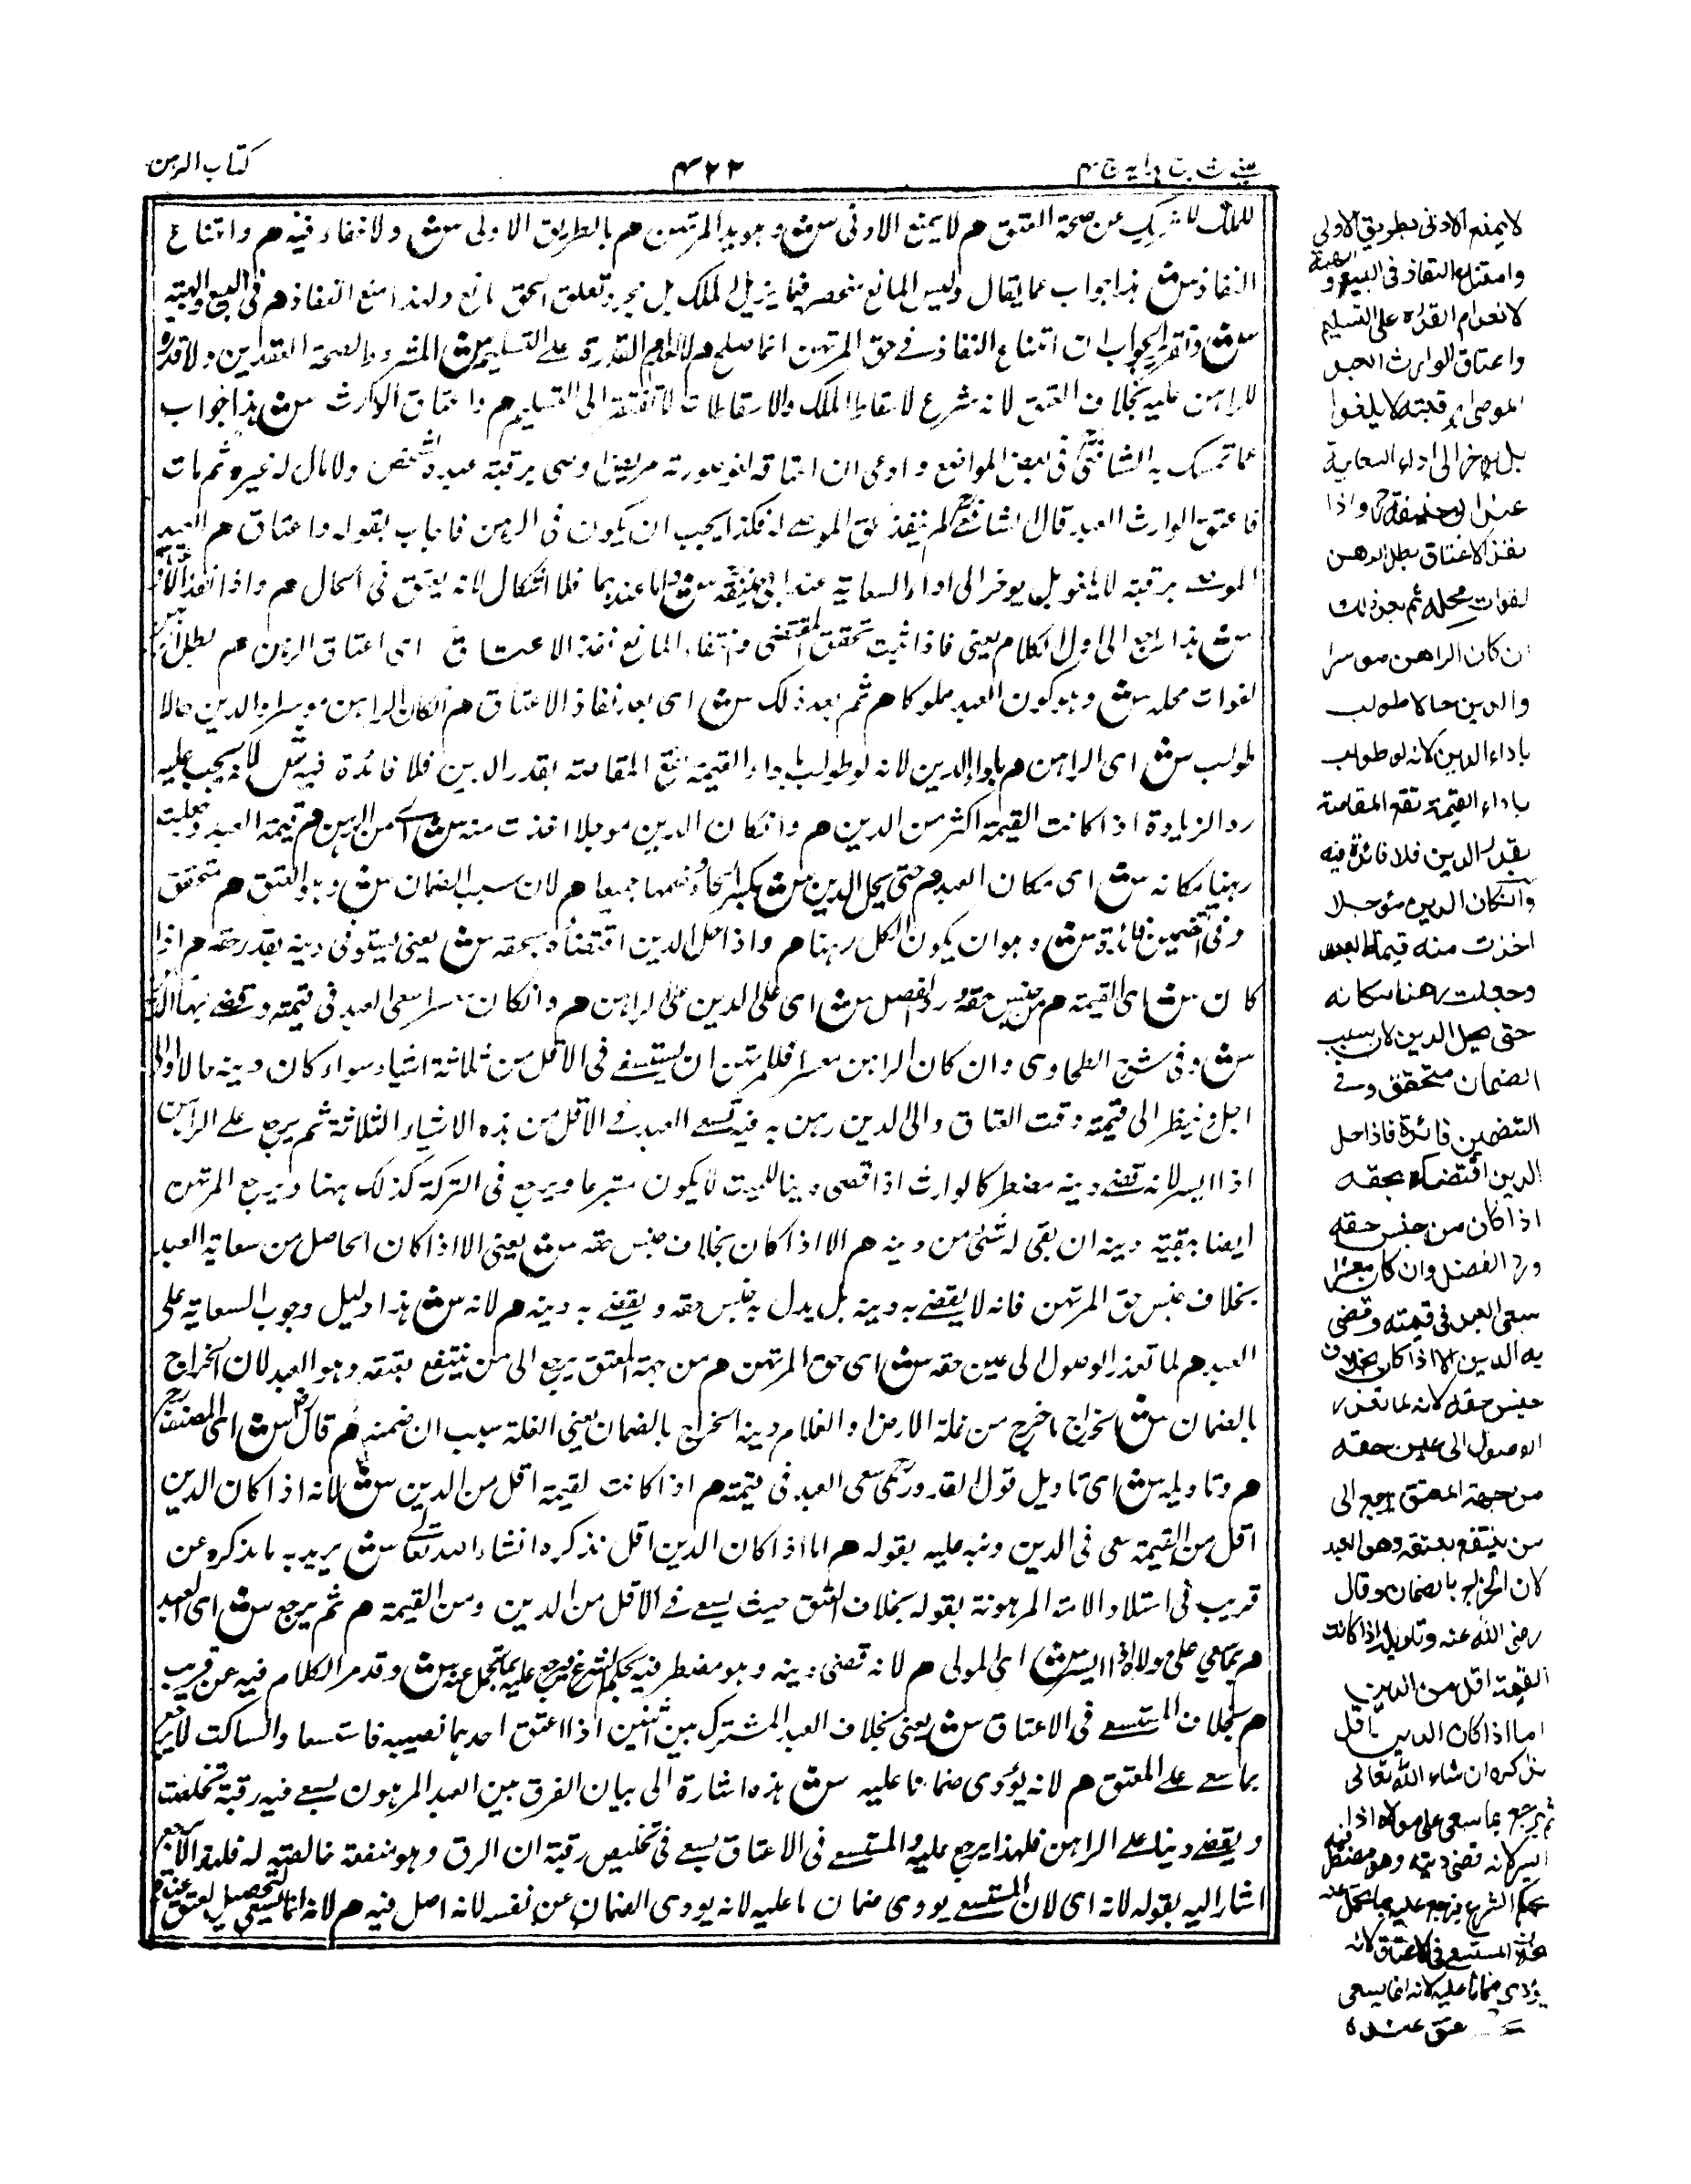 كتاب الرهن
٤٢٢
عينى شرح هدايه ج ٤
للملك للشريك عن صحة العتق هم لا يمنع الادنى ش وهو يد المرتهن هم بالطريق الاولى ش ولا خفاء فيه هم وامتناع
النفاذ ش هذا جواب عما يقال وليس المانع منحصر فيما يزيل الملك بل مجرد تعلق الحق مانع ولهذا منع النفاذ هم فى البيع والهبة
ش وتقرير الجواب ان امتناع النفاذ فى حق المرتهن انما هم لانعدام القدرة على التسليم ش المشروط لصحة العقدين ولا قدرة
للراهن عليه بخلاف العتق لانه شرع لاسقاط الملك والاسقاطات لا تفتقر الى التسليم هم واعتاق الوارث ش هذا جواب
عما تمسك به الشافعى فى بعض المواضع وادعى ان اعتاقه لغو صورته مريض اوصى برقبة عبده لشخص ولا مال له غيره ثم مات
فاعتق الوارث العبد قال الشافعى لم ينفذ عتق الموصى له فكذا يجب ان يكون فى الرهن فاجاب بقوله واعتاق هم العبد
الموصى برقبته لا يلغو بل يوخر الى اداء السعاية عند ابى حنيفة ش واما عندهما فلا اشكال لانه يعتق فى الحال هم واذا نفذ الاعتاق
ش هذا راجع الى اول الكلام يعنى فاذا ثبت تحقق المقتضى وانتفاء المانع نفذ الاعتاق اى اعتاق الراهن هم بطل الرهن
لفوات محله ش وهو كون العبد مملوكا هم ثم بعد ذلك ش اى بعد نفاذ الاعتاق هم انكان الراهن موسرا والدين حالا
طولب ش اى الراهن هم باداء الدين لانه لو طولب باداء القيمة تقع المقاصة بقدر الدين فلا فائدة فيه ش لانه يجب عليه
رد الزيادة اذا كانت القيمة اكثر من الدين هم وانكان الدين موجلا اخذت منه ش اى من الراهن هم قيمة العبد وجعلت
رهنا مكانه ش اى مكان العبد هم حتى يحل الدين ش بكسر الحاء وضمها جميعا هم لان سبب الضمان ش وهو العتق هم متحقق
وفى التضمين فائدة ش وهو ان يكون الكل رهنا هم واذا حل الدين اقتضاه بحقه ش يعنى يستوفى دينه بقدر حقه هم اذا
كان ش اى القيمة هم من جنس حقه ورد الفضل ش اى على الدين على الراهن هم وانكان معسرا سعى العبد فى قيمته وقضى بها الدين
ش وفى شرح الطحاوى وان كان الراهن معسرا فللمرتهن ان يستسعى فى الاقل من ثلاثة اشياء سواء كان دينه حالا او الى
اجل وينظر الى قيمته وقت العتاق والى الدين رهن به فيسعى العبد فى الاقل من هذه الاشياء الثلاثة ثم يرجع على الراهن
اذا ايسر لانه قضى دينه مضطر كالوارث اذا قضى دينا للميت لا يكون متبرعا ويرجع فى التركة كذلك ههنا ويرجع المرتهن
ايضا ببقية دينه ان بقى له شئى من دينه هم الا اذا كان بخلاف جنس حقه ش يعنى الا اذا كان الحاصل من سعاية العبد
بخلاف جنس حق المرتهن فانه لا يقضى به دينه بل يبدل به جنس حقه ويقضى به دينه هم لانه ش هذا دليل وجوب السعاية على
العبد هم لما تعذر الوصول الى عين حقه ش اى حق المرتهن هم من جهة المعتق يرجع الى من ينتفع بعتقه وهو العبد لان الخراج
بالضمان ش الخراج ما خرج من غلة الارض او الغلام ومنه الخراج بالضمان يعنى الغلة بسبب ان ضمنه هم قال ش اى المصنف
هم وتاويله ش اى تاويل قول القدورى سعى العبد فى قيمته هم اذا كانت القيمة اقل من الدين ش لانه اذا كان الدين
اقل من القيمة سعى فى الدين ونبه عليه بقوله هم اما اذا كان الدين اقل نذكره انشاء الله تعالى ش يريد به ما يذكره عن
قريب فى استيلاد الامة المرهونة بقوله بخلاف المعتق حيث يسعى فى الاقل من الدين ومن القيمة هم ثم يرجع ش اى العبد
هم بما سعى على مولاه اذا ايسر ش اى المولى هم لانه قضى دينه وهو مضطر فيه بحكم الشرع فيرجع عليه بما تحمل عنه ش وقد مر الكلام فيه عن قريب
هم بخلاف المستسعى فى الاعتاق ش يعنى بخلاف العبد المشترك بين اثنين اذا اعتق احدهما نصيبه فاستسعاه الساكت لا يرجع
بما سعى على المعتق هم لانه يؤدى ضمانا عليه ش هذه اشارة الى بيان الفرق بين العبد المرهون يسعى فيه رقبة تخلصت
ويقضى دينا على الراهن فلهذا يرجع عليه والمستسعى فى الاعتاق يسعى فى تخليص رقبة ان الرق وهو منفعة خالصة له فلهذا لا يرجع
اشار اليه بقوله لانه اى لان المستسعى يودى ضمان ما عليه لانه يودى الضمان عن نفسه لانه اصل فيه هم لانه انما يسعى لتحصيل العتق عنده
لا يمنع الادنى بطريق الاولى
وامتناع النفاذ فى البيع و
الهبة
لانعدام القدرة على التسليم
واعتاق الوارث العبد
الموصى برقبته لا يلغوا
بل يوخر الى اداء السعاية
عند ابى حنيفة رح واذا
نفذ الاعتاق بطل الرهن
لفوات محله ثم بعد ذلك
ان كان الراهن موسرا
والدين حالا طولب
باداء الدين لانه لو طولب
باداء القيمة تقع المقاصة
بقدر الدين فلا فائدة فيه
وانكان الدين مؤجلا
اخذت منه قيمة العبد
وجعلت رهنا مكانه
حتى يحل الدين لان سبب
الضمان متحقق وفى
التضمين فائدة فاذا حل
الدين اقتضاه بحقه
اذا كان من جنس حقه
ورد الفضل وان كان معسرا
سعى العبد فى قيمته وقضى
به الدين الا اذا كان بخلاف
جنس حقه لانه لما تعذر
الوصول الى عين حقه
من جهة المعتق يرجع الى
من ينتفع بعتقه وهو العبد
لان الخراج بالضمان وقال
رضى الله عنه وتاويله اذا كانت
القيمة اقل من الدين
اما اذا كان الدين اقل
نذكره ان شاء الله تعالى
ثم يرجع بما سعى على مولاه اذا
ايسر لانه قضى دينه وهو مضطر فيه
بحكم الشرع فيرجع عليه بما تحمل عنه
بخلاف المستسعى فى الاعتاق لانه
يؤدى ضمانا عليه لانه انما يسعى
عتق عنده